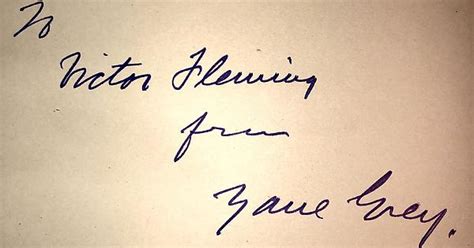 To
Victor Fleming
from
Zane Grey.